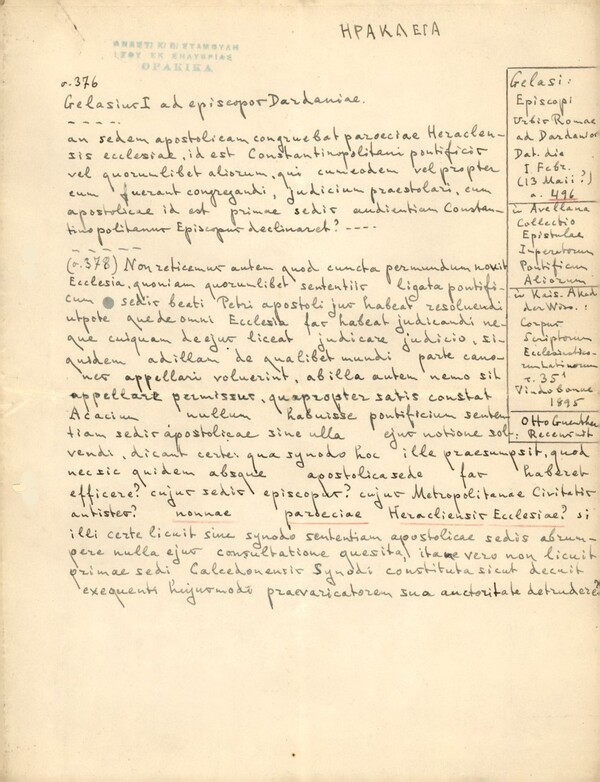 ΗΡΑΚΛΕΙΑ
ΘΡΑΚΙΚΑ
σ.376
Gelasius I ad episcopos Dardaniae.
an sedem apostolicam congruebat paroeciae Heraclen-
sis ecclesiae, id est Constantinopolitani pontificis
vel quorumlibet aliorum, qui cum eodem vel propter
eum fuerant congregandi, judicium praestolari, cum
apostolicae id est primae sedis audientiam Constan-
tinopolitanus Episcopus declinaret? ----
(σ.378) Non reticemus autem quod cuncta per mundum novit
Ecclesia, quoniam quorumlibet sententiis ligata pontifi-
cum sedis beati Petri apostoli jus habeat resolvendi
utpote quede omni Ecclesia fas habeat judicandi ne-
que cuiquam de ejus liceat judicare judicio, si-
quidem ad illam de qualibet mundi parte cano-
nes appellari voluerint, ab illa autem nemo sit
appellare permissus, quapropter satis constat
Acacium nullum habuisse pontificium senten-
tiam sedis apostolicae sine ulla ejus notione sol-
vendi, dicant certe: qua synodo hoc ille praesumpsit, quod
nec sic quidem absque apostolica sede fas haberet
efficere? cujus sedis episcopus? cujus Metropolitanae Civitatis
antistes? nonnae paroeciae Heracliensis Ecclesiae? si
illi certe licuit sine synodo sententiam apostolicae sedis abrum-
pere nulla ejus consultatione quesita, itane vero non licuit
primae sedi Calcedonensis Synodi constituta sicut decuit
exequenti hujusmodi praevaricatorem sua auctoritate detrudere?
Gelasi:
Episcopi
Urbis Romae
ad Dardanos
Dat. die
I Febr.
(13 Maii?)
a. 496
in Avellana
Collectio
Epistulae
Imperatorum
Pontificum
Aliorum
in Kais. Akad
der Wiss.:
Corpus
Scriptorum
Ecclesiastico-
rum Latinorum
τ. 35¹
Vindobonae
1895
Otto Guenther
: Recensuit